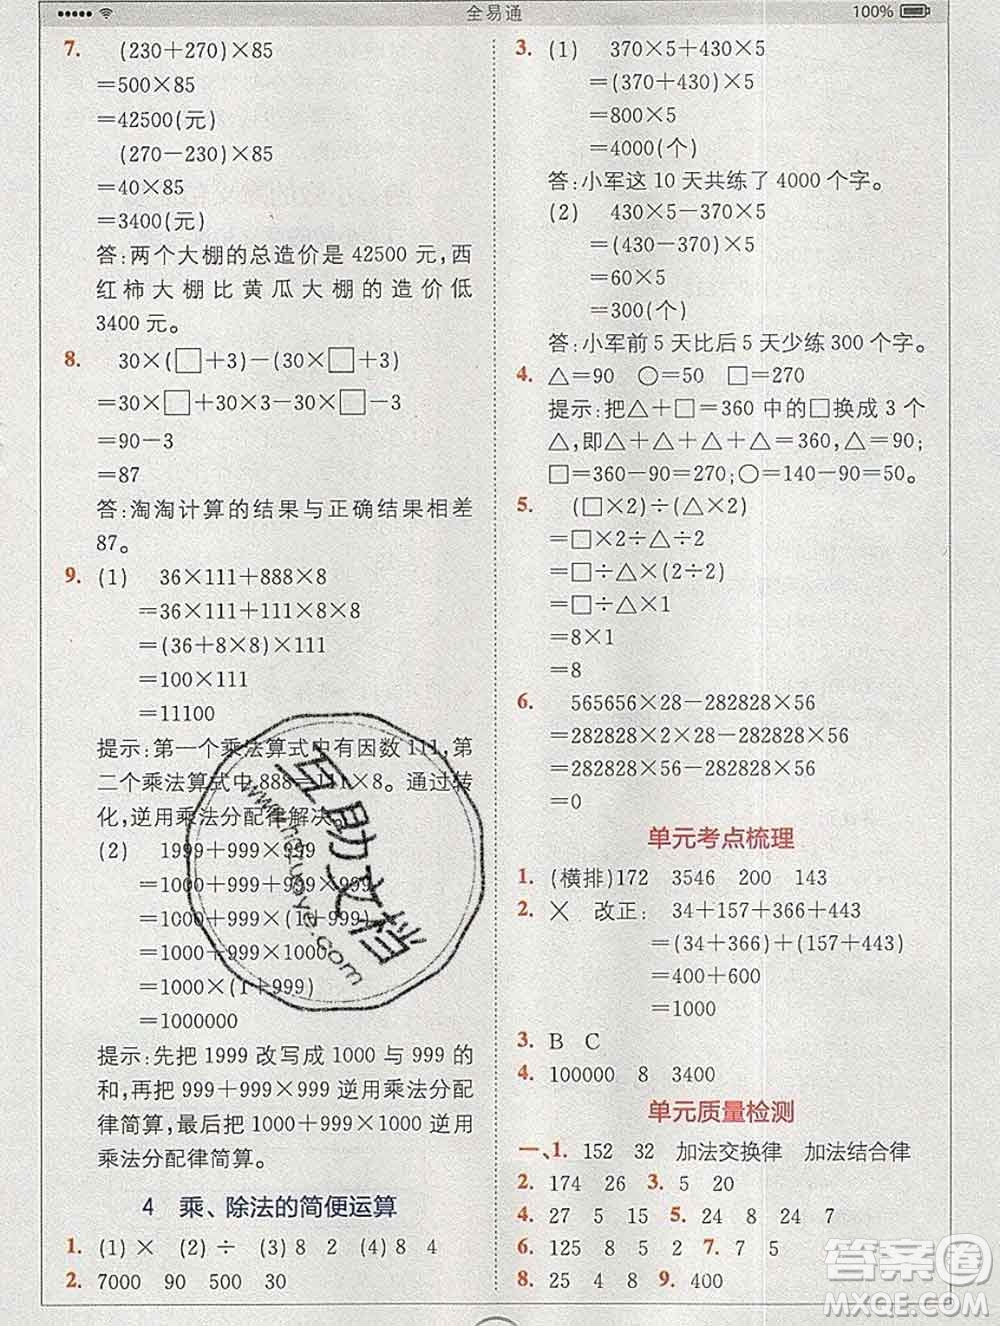 全易通
100%
7. (230+270)×85
=500×85
=42500(元)
(270-230)×85
=40×85
=3400(元)
答:两个大棚的总造价是 42500 元,西
红柿大棚比黄瓜大棚的造价低
3400 元。
8. 30×(□+3)-(30×□+3)
=30×□+30×3-30×□-3
=90-3
=87
答:淘淘计算的结果与正确结果相差
87。
9. (1) 36×111+888×8
=36×111+111×8×8
=(36+8×8)×111
=100×111
=11100
提示:第一个乘法算式中有因数 111,第
二个乘法算式中 888=111×8。通过转
化,逆用乘法分配律解决。
(2) 1999+999×999
=1000+999+999×999
=1000+999×(1+999)
=1000+999×1000
=1000×(1+999)
=1000000
提示:先把 1999 改写成 1000 与 999 的
和,再把 999+999×999 逆用乘法分配
律简算,最后把 1000+999×1000 逆用
乘法分配律简算。
4 乘、除法的简便运算
1. (1)× (2)÷ (3)8 2 (4)8 4
2. 7000 90 500 30
3. (1) 370×5+430×5
=(370+430)×5
=800×5
=4000(个)
答:小军这 10 天共练了 4000 个字。
(2) 430×5-370×5
=(430-370)×5
=60×5
=300(个)
答:小军前 5 天比后 5 天少练 300 个字。
4. △=90 ○=50 □=270
提示:把△+□=360 中的□换成 3 个
△,即△+△+△+△=360,△=90;
□=360-90=270;○=140-90=50。
5. (□×2)÷(△×2)
=□×2÷△÷2
=□÷△×(2÷2)
=□÷△×1
=8×1
=8
6. 565656×28-282828×56
=282828×2×28-282828×56
=282828×56-282828×56
=0
单元考点梳理
1. (横排)172 3546 200 143
2. × 改正: 34+157+366+443
=(34+366)+(157+443)
=400+600
=1000
3. B C
4. 100000 8 3400
单元质量检测
一、1. 152 32 加法交换律 加法结合律
2. 174 26 3. 5 20
4. 27 5 15 5. 24 8 24 7
6. 125 8 5 2 7. 7 5
8. 25 4 8 9. 400
互助文档
www.hzduoye.com
答案圈
MXQE.COM